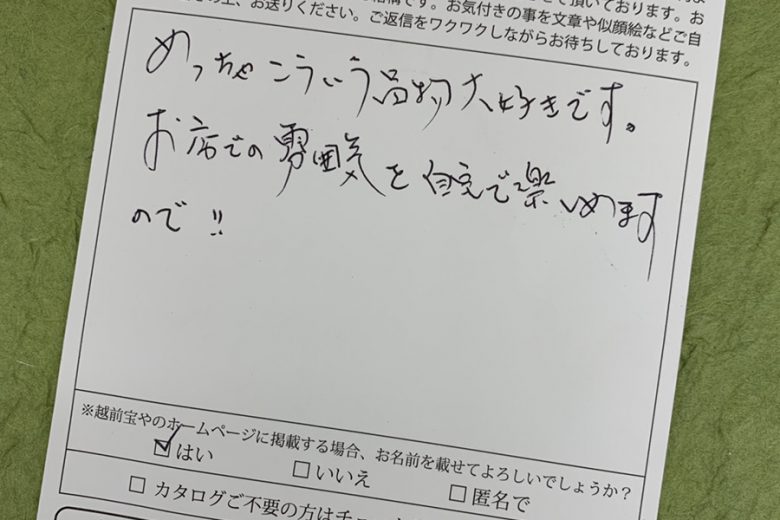 て頂いております。お
の上、お送りください。ご返信をワクワクしながらお待ちしております。
構です。お気付きの事を文章や似顔絵などご自
めっちゃこういう品物大好きです。
お店での雰囲気を自宅で楽しめます
ので!!
※越前宝やのホームページに掲載する場合、お名前を載せてよろしいでしょうか?
☑はい □いいえ □匿名で
□ カタログご不要の方はチェ